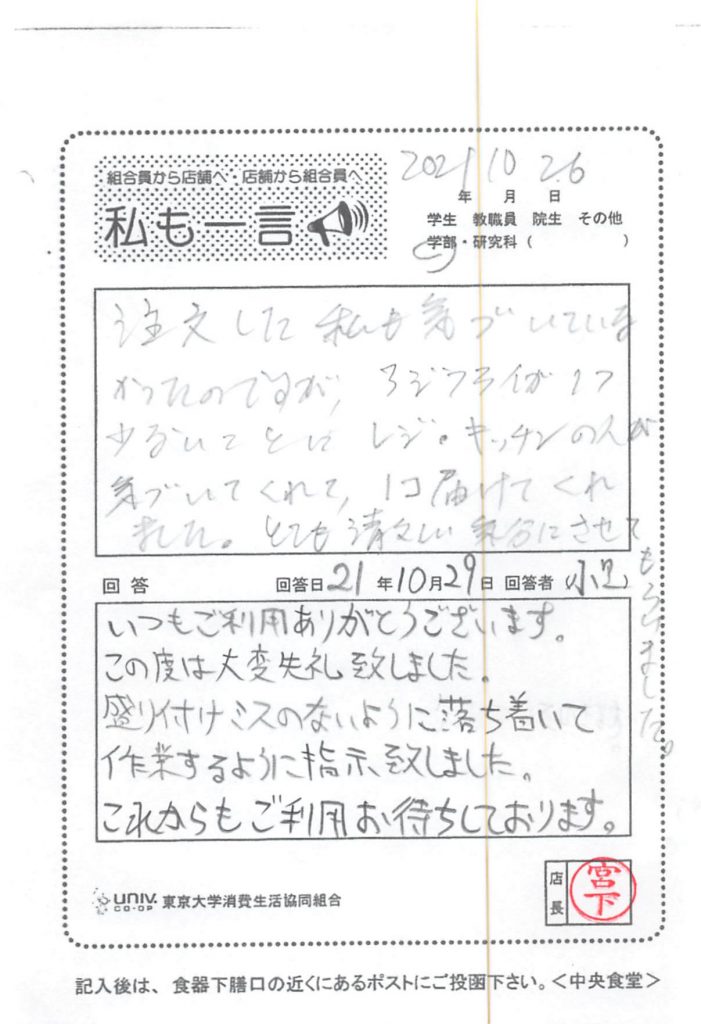 組合員から店舗へ・店舗から組合員へ
私も一言
2021 10 26
年 月 日
学生 教職員 院生 その他
学部・研究科( )
注文した私も気づいていな
かったのですが、アジフライが1つ
少ないことに レジ・キッチンの人が
気づいてくれて、1コ届けてくれ
ました。とても清々しい気分にさせて
もらいました。
回答 回答日 21 年 10 月 29 日 回答者 (小里)
いつもご利用ありがとうございます。
この度は大変失礼致しました。
盛り付けミスのないように落ち着いて
作業するように指示致しました。
これからもご利用お待ちしております。
UNIV. CO-OP 東京大学消費生活協同組合
店長 宮下
記入後は、食器下膳口の近くにあるポストにご投函下さい。<中央食堂>